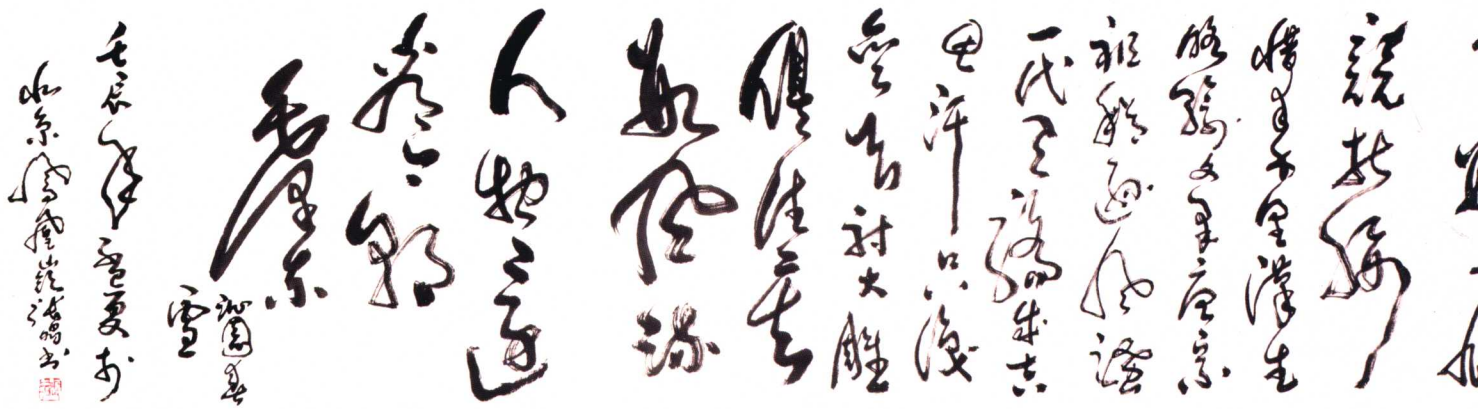 競折腰
惜秦皇漢武
略輸文采唐宗
祖稍遜風騷
一代天驕成吉
思汗只識
彎弓射大雕
俱往矣
數風流
人物還
看今朝
毛澤東
沁園春
雪
壬辰年夏於
北京鳳凰嶺書